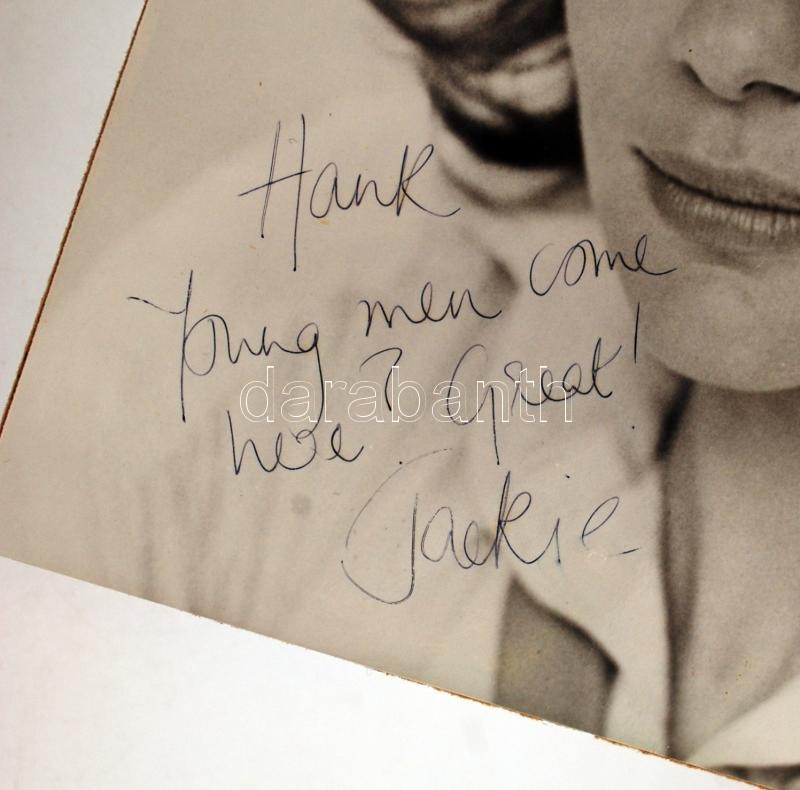 Hank
Young men come
here? Great!
Jackie
darabanth